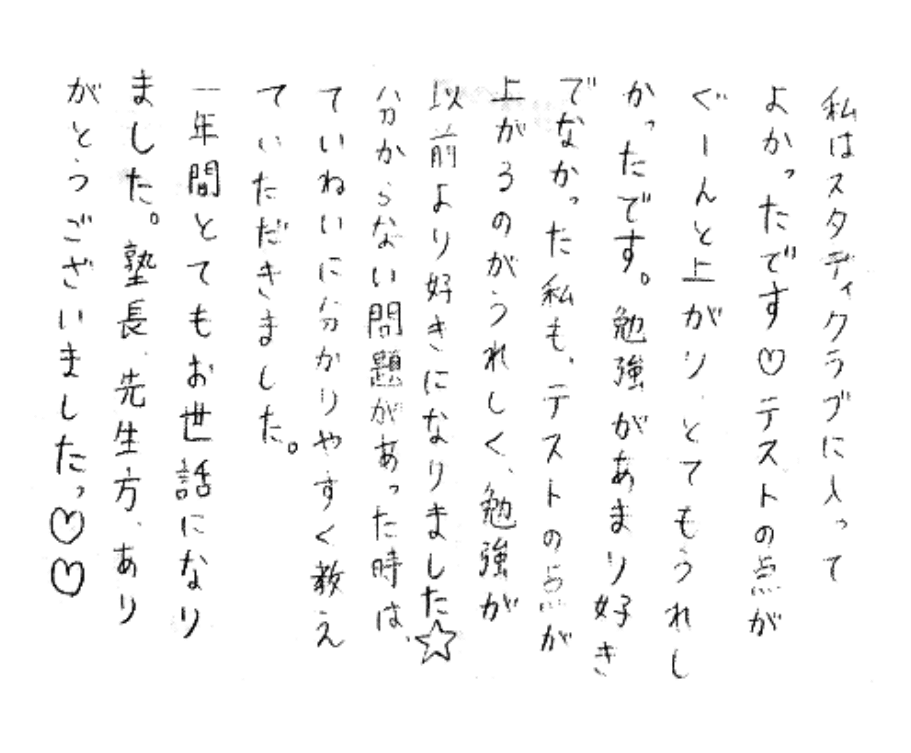 私はスタディクラブに入って
よかったです♡テストの点が
ぐーんと上がり、とてもうれし
かったです。勉強があまり好き
でなかった私も、テストの点が
上がるのがうれしく、勉強が
以前より好きになりました☆
分からない問題があった時は、
ていねいに分かりやすく教え
ていただきました。
一年間とてもお世話になり
ました。塾長、先生方、あり
がとうございましたっ♡♡